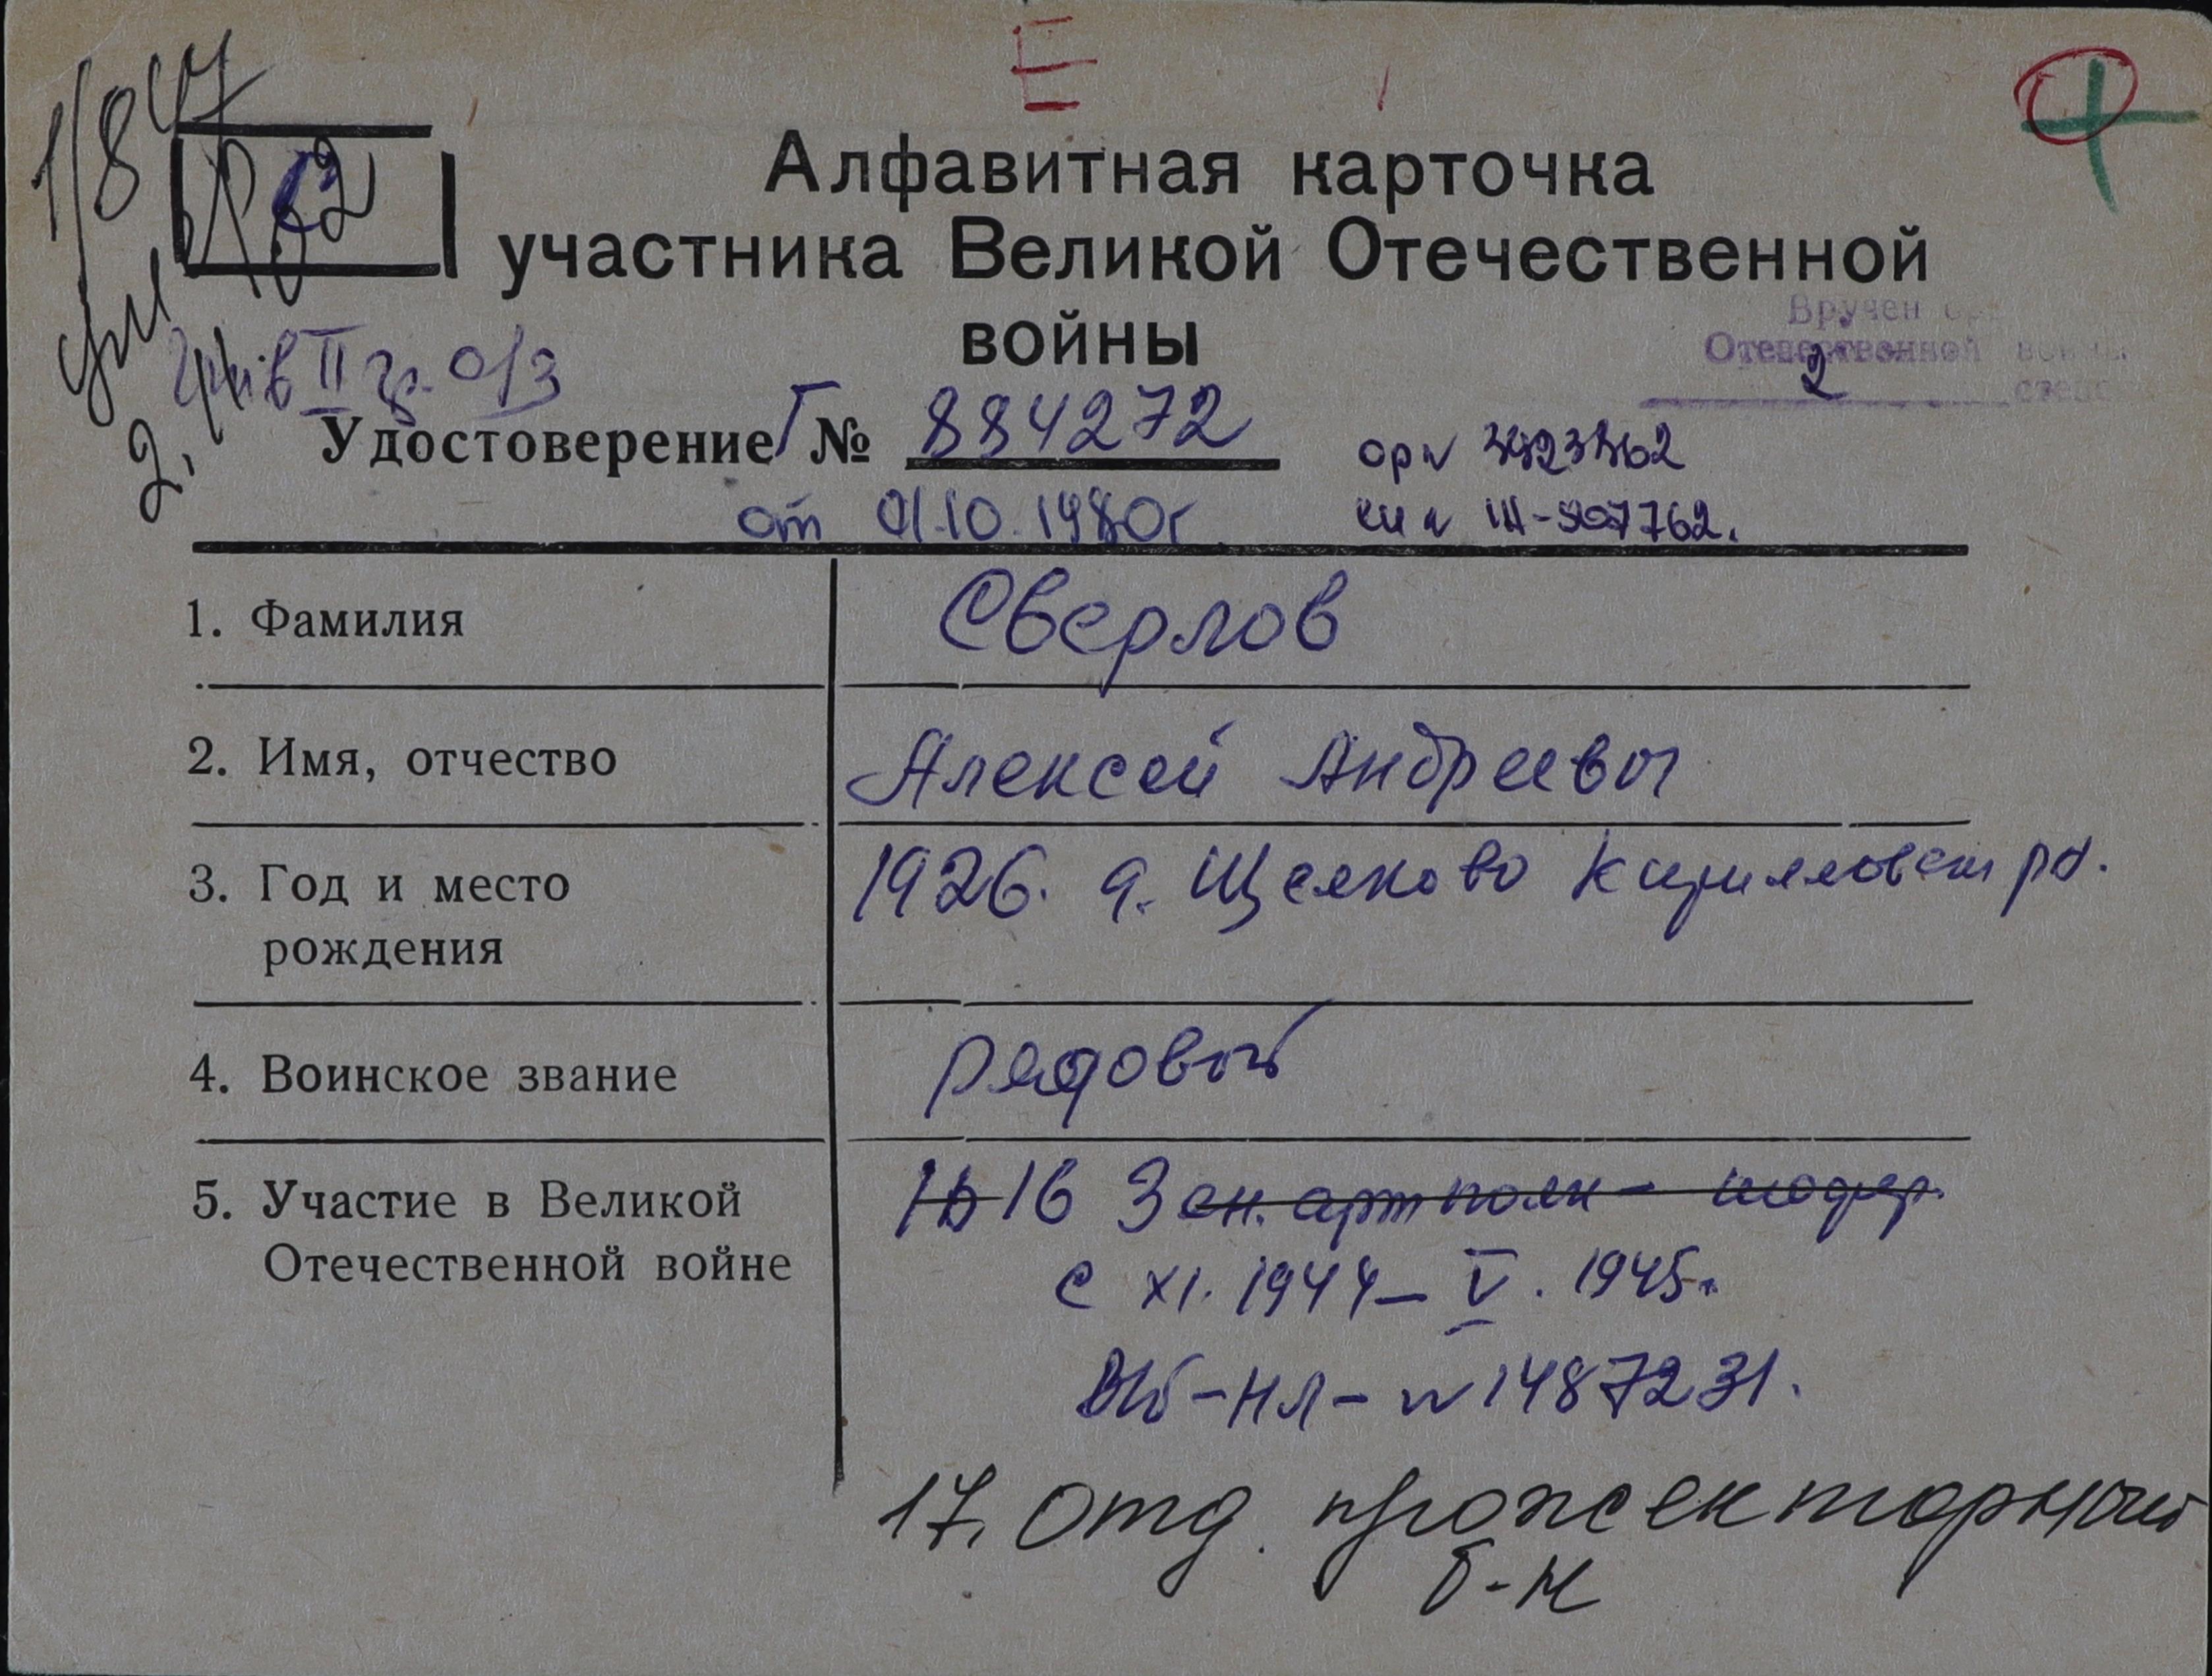 Е
1/847
С
Алфавитная карточка
участника Великой Отечественной
войны
Вручен
Отечественной
2
инв II гр. о/з
Удостоверение Г № 884272
от 01.10.1980г.
1. Фамилия Сверлов
2. Имя, отчество Алексей Андреевич
3. Год и место рождения 1926. д. Щелково Кирилловск рн.
4. Воинское звание рядовой
5. Участие в Великой Отечественной войне 16 16 Зен. арт полк - шофер.
с XI. 1944 – V. 1945г.
ВБ-НЛ-№1487231.
17. отд. прожекторный
б-н